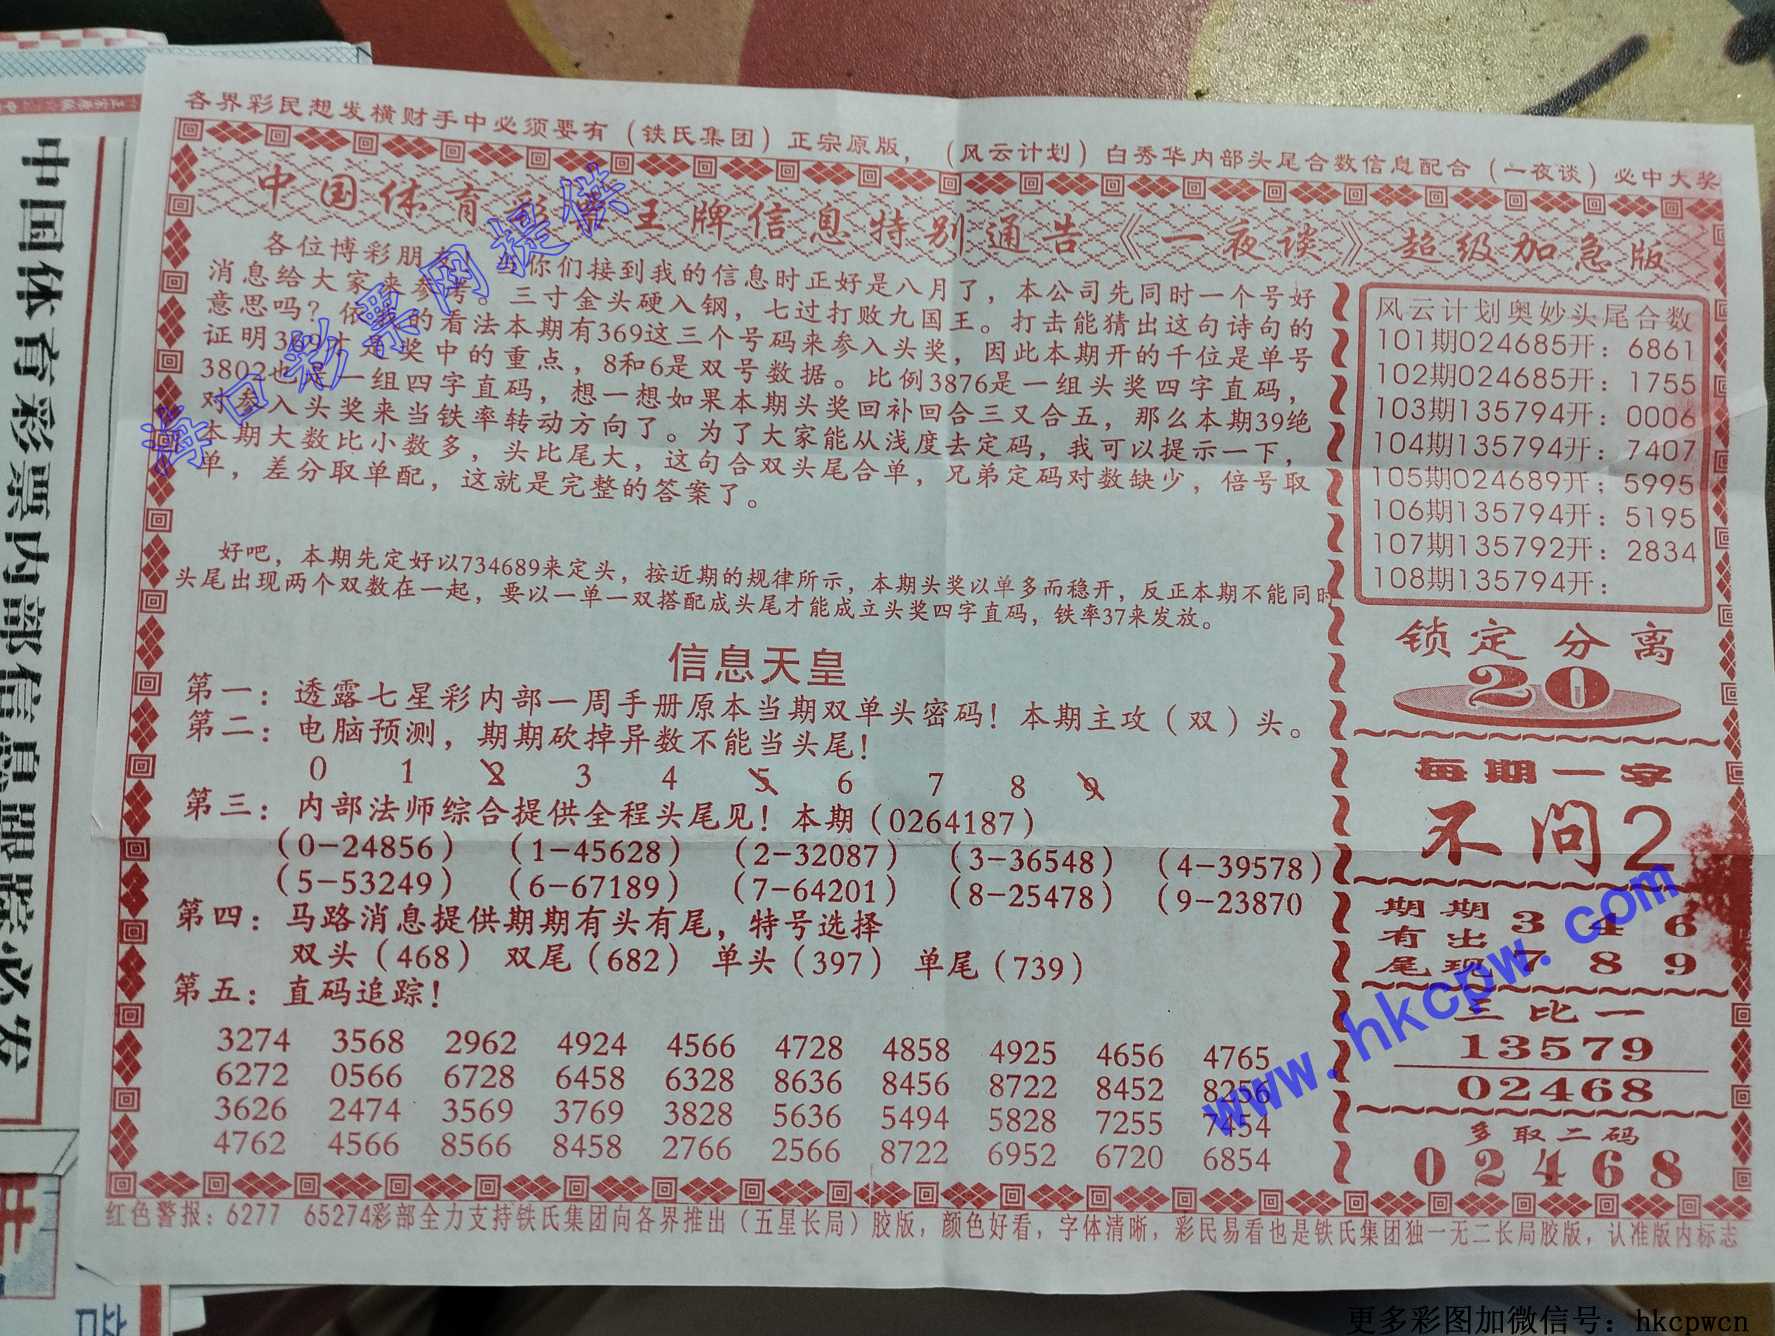 各界彩民想发横财手中必须要有（铁氏集团）正宗原版，（风云计划）白秀华内部头尾合数信息配合（一夜谈）必中大奖
中国体育彩 王牌信息特别通告《一夜谈》超级加急版
各位博彩朋 当你们接到我的信息时正好是八月了，本公司先同时一个号好
消息给大家来参考。三寸金头硬入钢，七过打败九国王。打击能猜出这句诗句的
意思吗？依 的看法本期有369这三个号码来参入头奖，因此本期开的千位是单号
证明369才是奖中的重点，8和6是双号数据。比例3876是一组头奖四字直码，
3802也是一组四字直码，想一想如果本期头奖回补回合三又合五，那么本期39绝
对参入头奖来当铁率转动方向了。为了大家能从浅度去定码，我可以提示一下，
本期大数比小数多，头比尾大，这句合双头尾合单，兄弟定码对数缺少，倍号取
单，差分取单配，这就是完整的答案了。
好吧，本期先定好以734689来定头，按近期的规律所示，本期头奖以单多而稳开，反正本期不能同时
头尾出现两个双数在一起，要以一单一双搭配成头尾才能成立头奖四字直码，铁率37来发放。
信息天皇
第一：透露七星彩内部一周手册原本当期双单头密码！本期主攻（双）头。
第二：电脑预测，期期砍掉异数不能当头尾！
0 1 2 3 4 5 6 7 8 9
第三：内部法师综合提供全程头尾见！本期（0264187）
（0-24856） （1-45628） （2-32087） （3-36548） （4-39578）
（5-53249） （6-67189） （7-64201） （8-25478） （9-23870
第四：马路消息提供期期有头有尾，特号选择
双头（468） 双尾（682） 单头（397） 单尾（739）
第五：直码追踪！
3274 3568 2962 4924 4566 4728 4858 4925 4656 4765
6272 0566 6728 6458 6328 8636 8456 8722 8452 8256
3626 2474 3569 3769 3828 5636 5494 5828 7255 7454
4762 4566 8566 8458 2766 2566 8722 6952 6720 6854
风云计划奥妙头尾合数
101期024685开：6861
102期024685开：1755
103期135794开：0006
104期135794开：7407
105期024689开：5995
106期135794开：5195
107期135792开：2834
108期135794开：
锁定分离
20
每期一字
不问2
期期 3 4 6
有出
尾现 7 8 9
三比一
13579
02468
多取二码
02468
红色警报：6277 65274彩部全力支持铁氏集团向各界推出（五星长局）胶版，颜色好看，字体清晰，彩民易看也是铁氏集团独一无二长局胶版，认准版内标志
中国体育彩票内部信息跟踪必发
海口彩票网提供
www.hkcpw.com
更多彩图加微信号：hkcpwcn